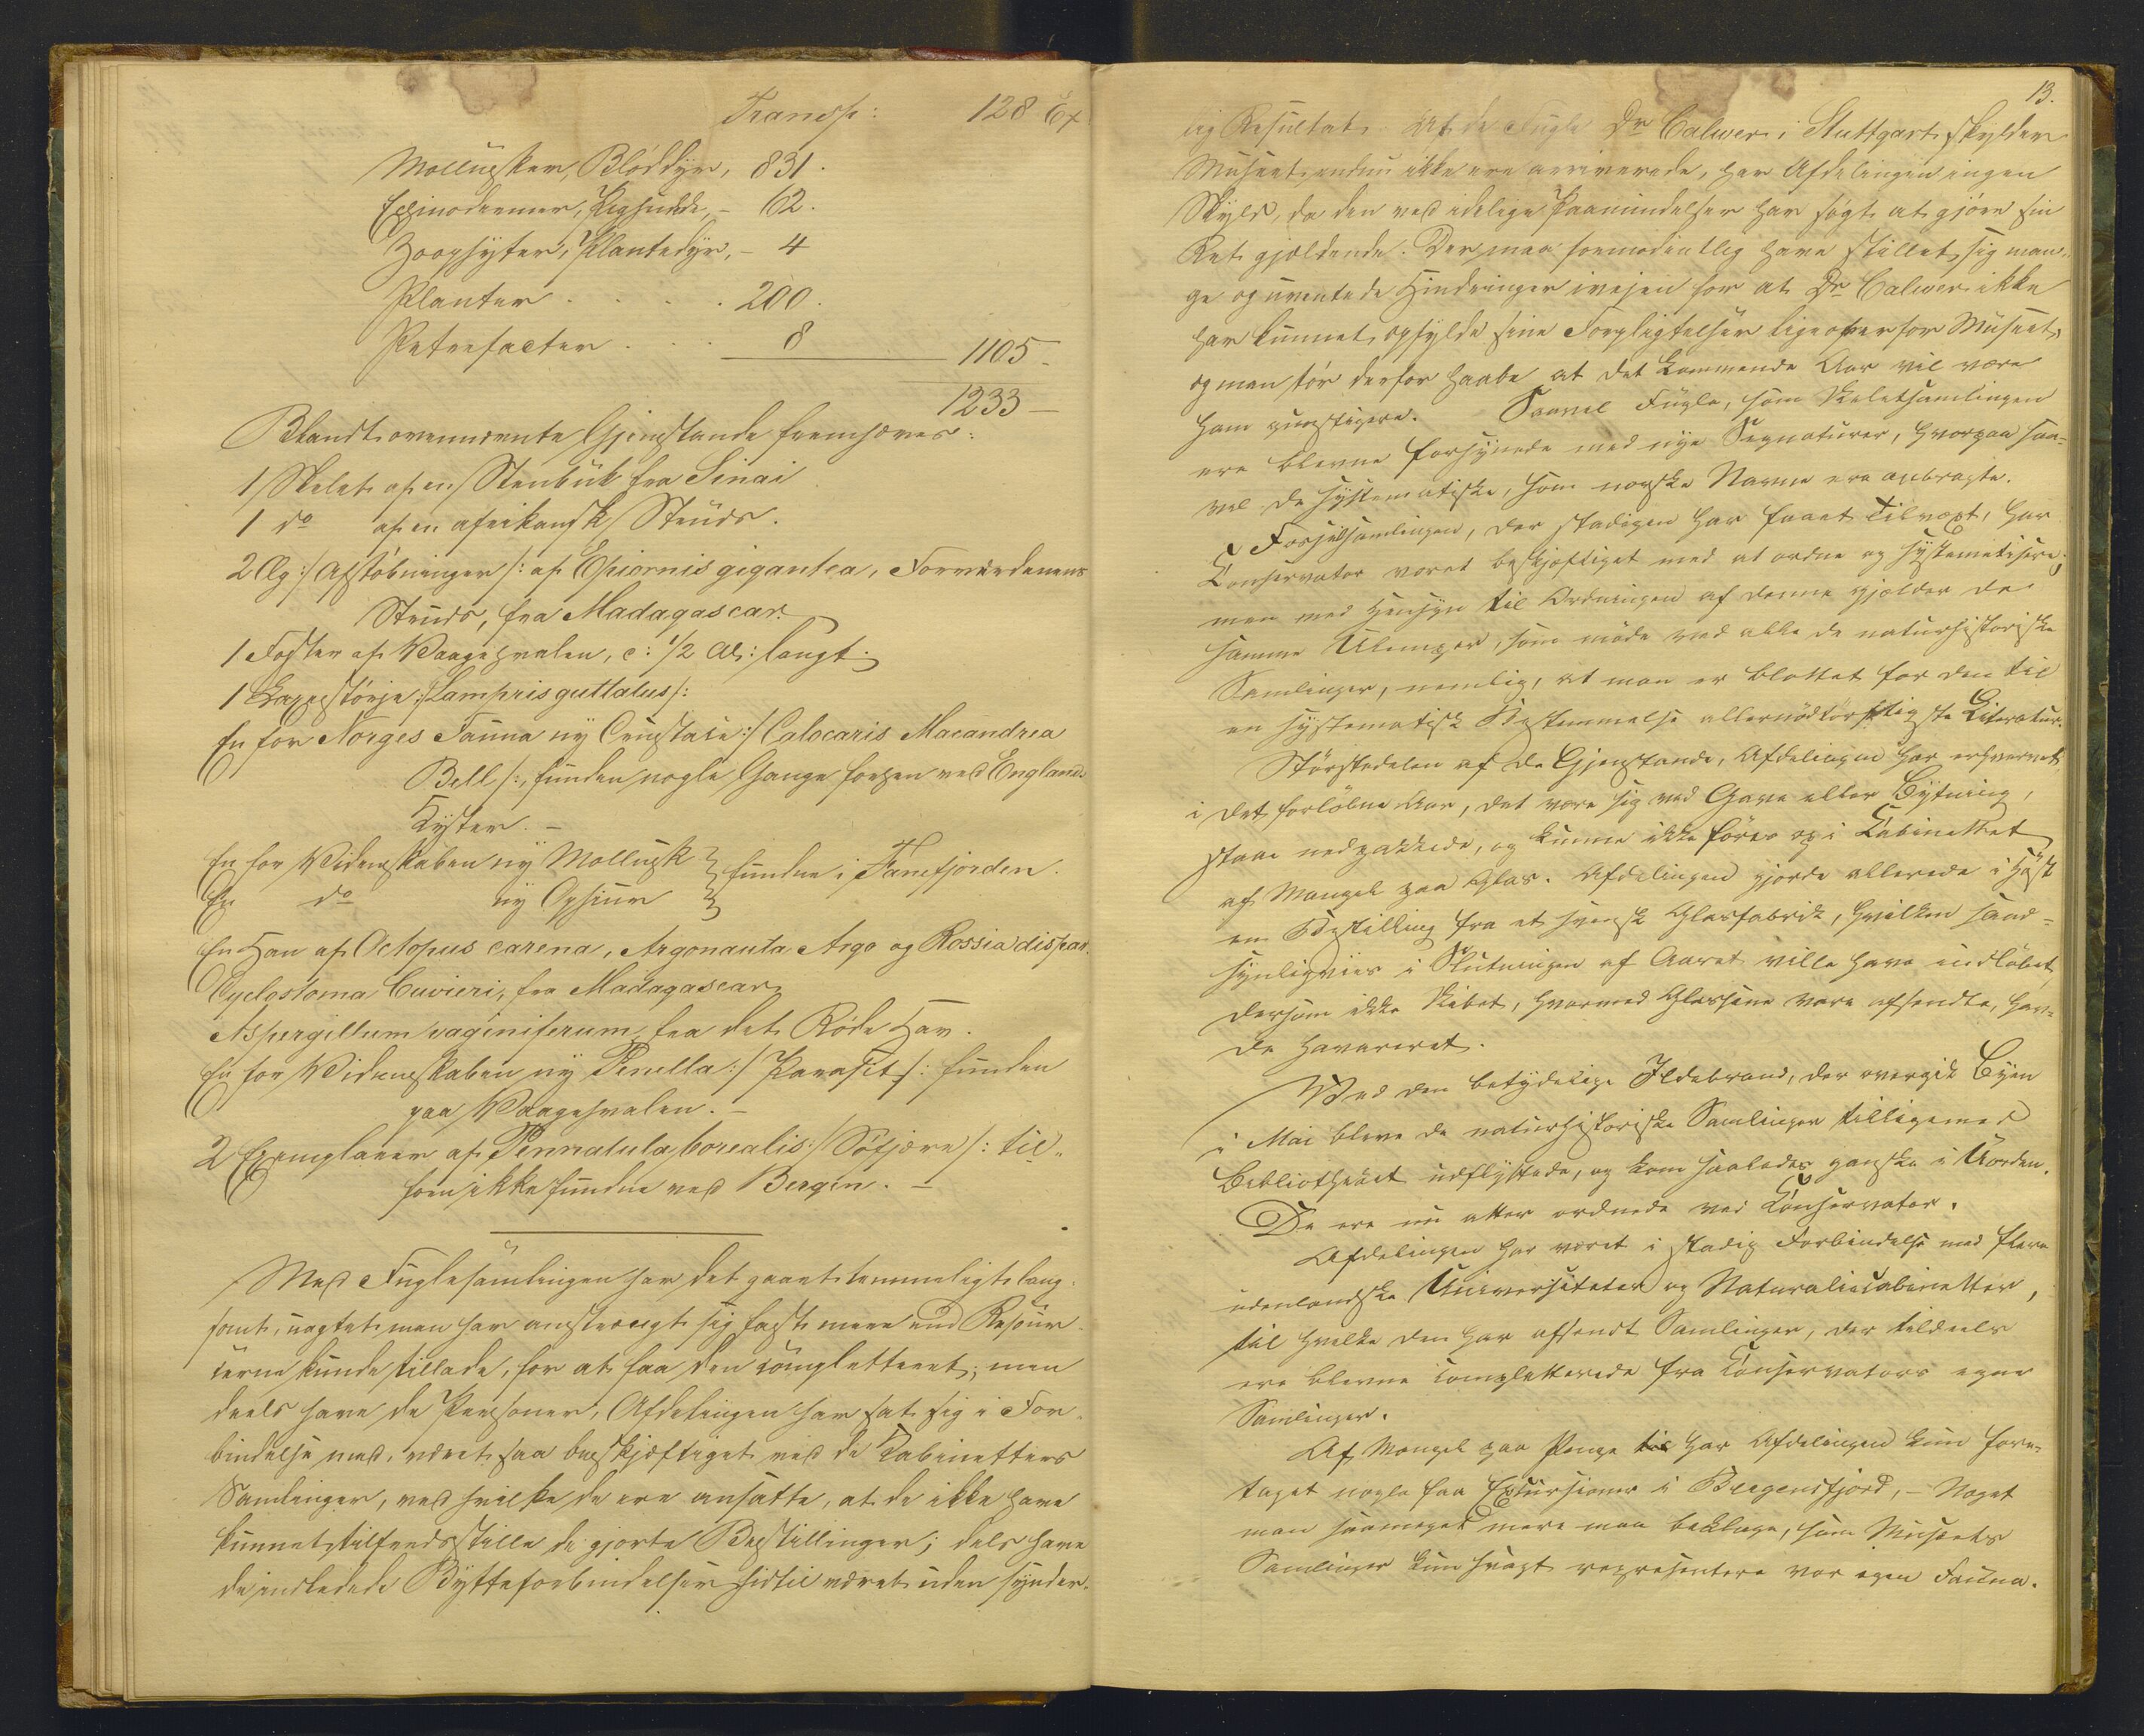 Transp: 128 Ex
Mollusker, Bløddyr, 831.
Echinodermer, Pighude, - 62.
Zoophyter, Plantedyr, - 4
Planter . . . . . 200.
Petrefacter . . . 8
1105 -
1233 -
Blandt ovennævnte Gjenstande fremhæves:
1 Skelet af en Stenbuk fra Sinai
1 do af en afrikansk Struds.
2 Æg :/ Afstøbninger /: af Epiornis gigantea, Forverdenens
Struds, fra Madagascar.
1 Foster af Vaagehvalen, c: 1/2 Al: langt.
1 Laxestørje :/ Lampris guttatus /:
En for Norges Fauna ny Crustace :/ Calocaris Macandrea
Bell /:, funden nogle Gange forhen ved Englands
Kyster. -
En for Videnskaben ny Mollusk } fundne i Fanefjorden.
En do ny Ophiur
En Han af Octopus carena, Argonauta Argo og Rossia dispar.
Cyclostoma Cuvieri, fra Madagascar,
Aspergillum vaginiferum, fra det Røde Hav.
En for Videnskaben ny Penella :/ Parasit /: funden
paa Vaagehvalen. -
2 Exemplarer af Pennatula borealis :/ Søfjære /: til-
forn ikke fundne ved Bergen. -
Med Fuglesamlingen har det gaaet temmeligt lang-
somt, uagtet man har anstrengt sig fast mere end Resour-
cerne kunde tillade, for at faa den completteret; men
deels have de Personer, Afdelingen har sat sig i For-
bindelse med, været saa beskjæftiget ved de Kabinetters
Samlinger, ved hvilke de ere ansatte, at de ikke have
kunnet tilfredsstille de gjorte Bestillinger; dels have
de indledede Bytteforbindelser hidtil været uden synder-
13.
lig Resultat. At de Fugle Dr Calwer i Stuttgart skylder
Museet, endnu ikke ere arriverede, har Afdelingen ingen
Skyld, da den ved idelige Paamindelser har søgt at gjøre sin
Ret gjældende. Der maa formodentlig have stillet sig man-
ge og uventede Hindringer ivejen for at Dr Calwer ikke
har kunnet opfylde sine Forpligtelser ligeoverfor Museet,
og man tør derfor haabe at det kommende Aar vil være
ham gunstigere. Saavel Fugle, som Skeletsamlingen
ere blevne forsynede med nye Signaturer, hvorpaa saa-
vel de systematiske, som norske Navne ere anbragte.
Fossilsamlingen, der stadigen har faaet Tilvæxt, har
Conservator været beskjæftiget med at ordne og systematisere;
men med Hensyn til Ordningen af denne gjælder de
samme Ulemper, som møde ved alle de naturhistoriske
Samlinger, nemlig, at man er blottet for den til
en systematisk Bestemmelse allernødtørftigste Literatur.
Størstedelen af de Gjenstande, Afdelingen har erhvervet
i det forløbne Aar, det være sig ved Gave eller Bytning,
staae nedpakkede, og kunne ikke føres op i Cabinettet
af Mangel paa Glas. Afdelingen gjorde allerede i Høst
en Bestilling fra et svensk Glasfabrik, hvilken sand-
synligviis i Slutningen af Aaret ville have indløbet,
dersom ikke Skibet, hvormed Glassene vare afsendte, hav-
de havareret.
Ved den betydelige Ildebrand, der overgik Byen
i Mai bleve de naturhistoriske Samlinger tilligemed
Bibliotheket udflyttede, og kom saaledes ganske i Uorden.
De ere nu atter ordnede ved Conservator.
Afdelingen har været i stadig Forbindelse med flere
udenlandske Universiteter og Naturaliecabinetter,
til hvilke den har afsendt Samlinger, der tildeels
ere blevne completterede fra Conservators egne
Samlinger.
Af Mangel paa Penge har Afdelingen kun fore-
taget nogle faa Excursioner i Bergensfjord, - Noget
man saameget mere maa beklage, som Museets
Samlinger kun svagt repræsentere vor egen Fauna.